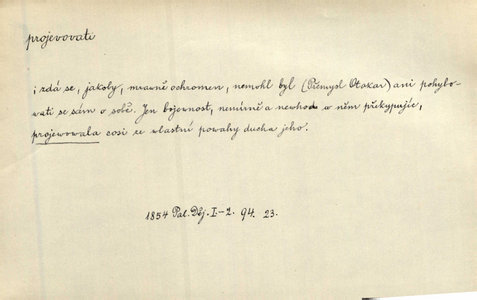 projevovati
i zdá se, jakoby, mravně ochromen, nemohl byl (Přemysl Otakar) ani pohybo-
vati se sám o sobě. Jen bojovnost, nemírně a nevhod w něm překypujíc,
projewowala cosi ze vlastní povahy ducha jeho.
1854 Pal. Děj. I-2. 94. 23.